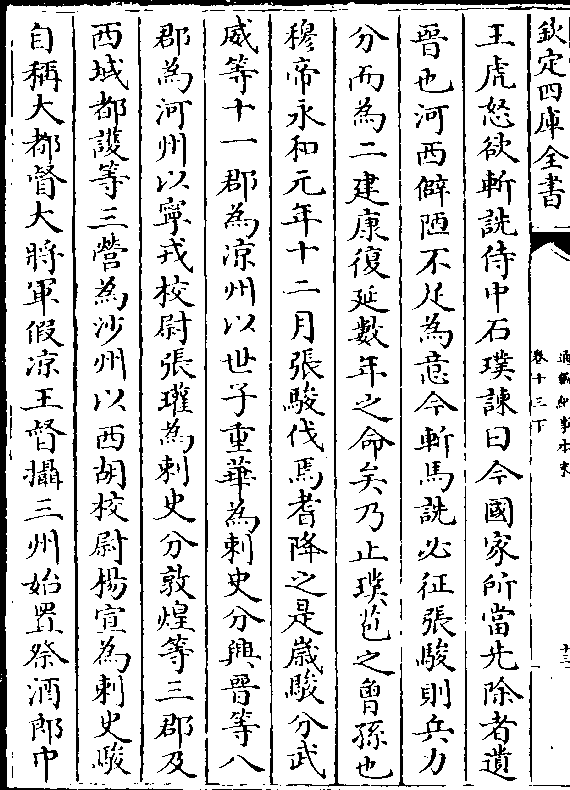 欽定四庫全書
通鑑紀事本末
卷十三下
十三
王虎怒欲斬詵侍中石璞諫曰今國家所當先除者遺
晉也河西僻陋不足為意今斬馬詵必征張駿則兵力
分而為二建康復延數年之命矣乃止璞苞之曾孫也
穆帝永和元年十二月張駿伐焉耆降之是歲駿分武
威等十一郡為涼州以世子重華為刺史分興晉等八
郡為河州以寧戎校尉張瓘為刺史分敦煌等三郡及
西域都護等三營為沙州以西胡校尉楊宣為刺史駿
自稱大都督大將軍假凉王督攝三州始置祭酒郎中